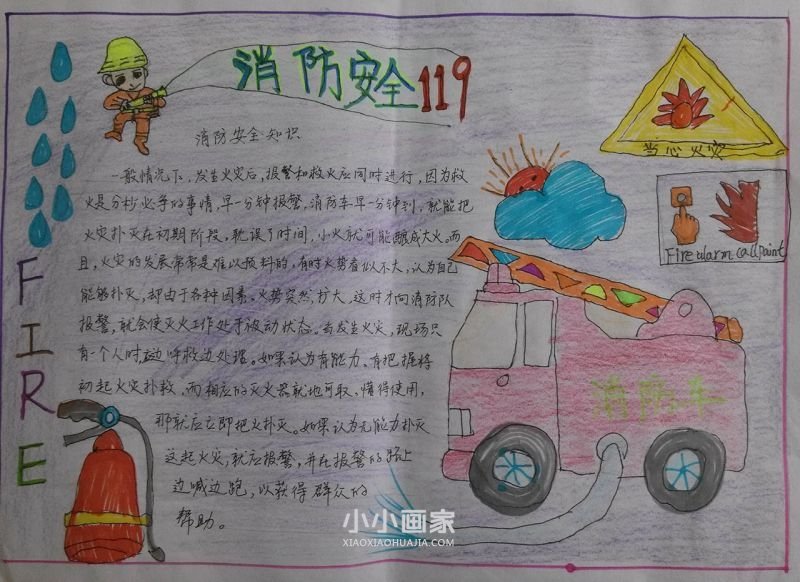 消防安全119
消防安全知识
一般情况下，发生火灾后，报警和救火应同时进行，因为救
火是分秒必争的事情，早一分钟报警，消防车早一分钟到，就能把
火灾扑灭在初期阶段，耽误了时间，小火就可能酿成大火。而
且，火灾的发展常常是难以预料的，有时火势看似不大，认为自己
能够扑灭，却由于各种因素，火势突然扩大，这时才向消防队
报警，就会使灭火工作处于被动状态。当发生火灾，现场只
有一个人时应边呼救边处理。如果认为有能力、有把握将
初起火灾扑救，而相应的灭火器就地可取、懂得使用，
那就应立即把火扑灭。如果认为无能力扑灭
这起火灾，就应报警，并在报警的路上
边喊边跑，以获得群众的
帮助。
FIRE
当心火灾
Fire alarm call point
消防车
小小画家
XIAOXIAOHUAJIA.COM